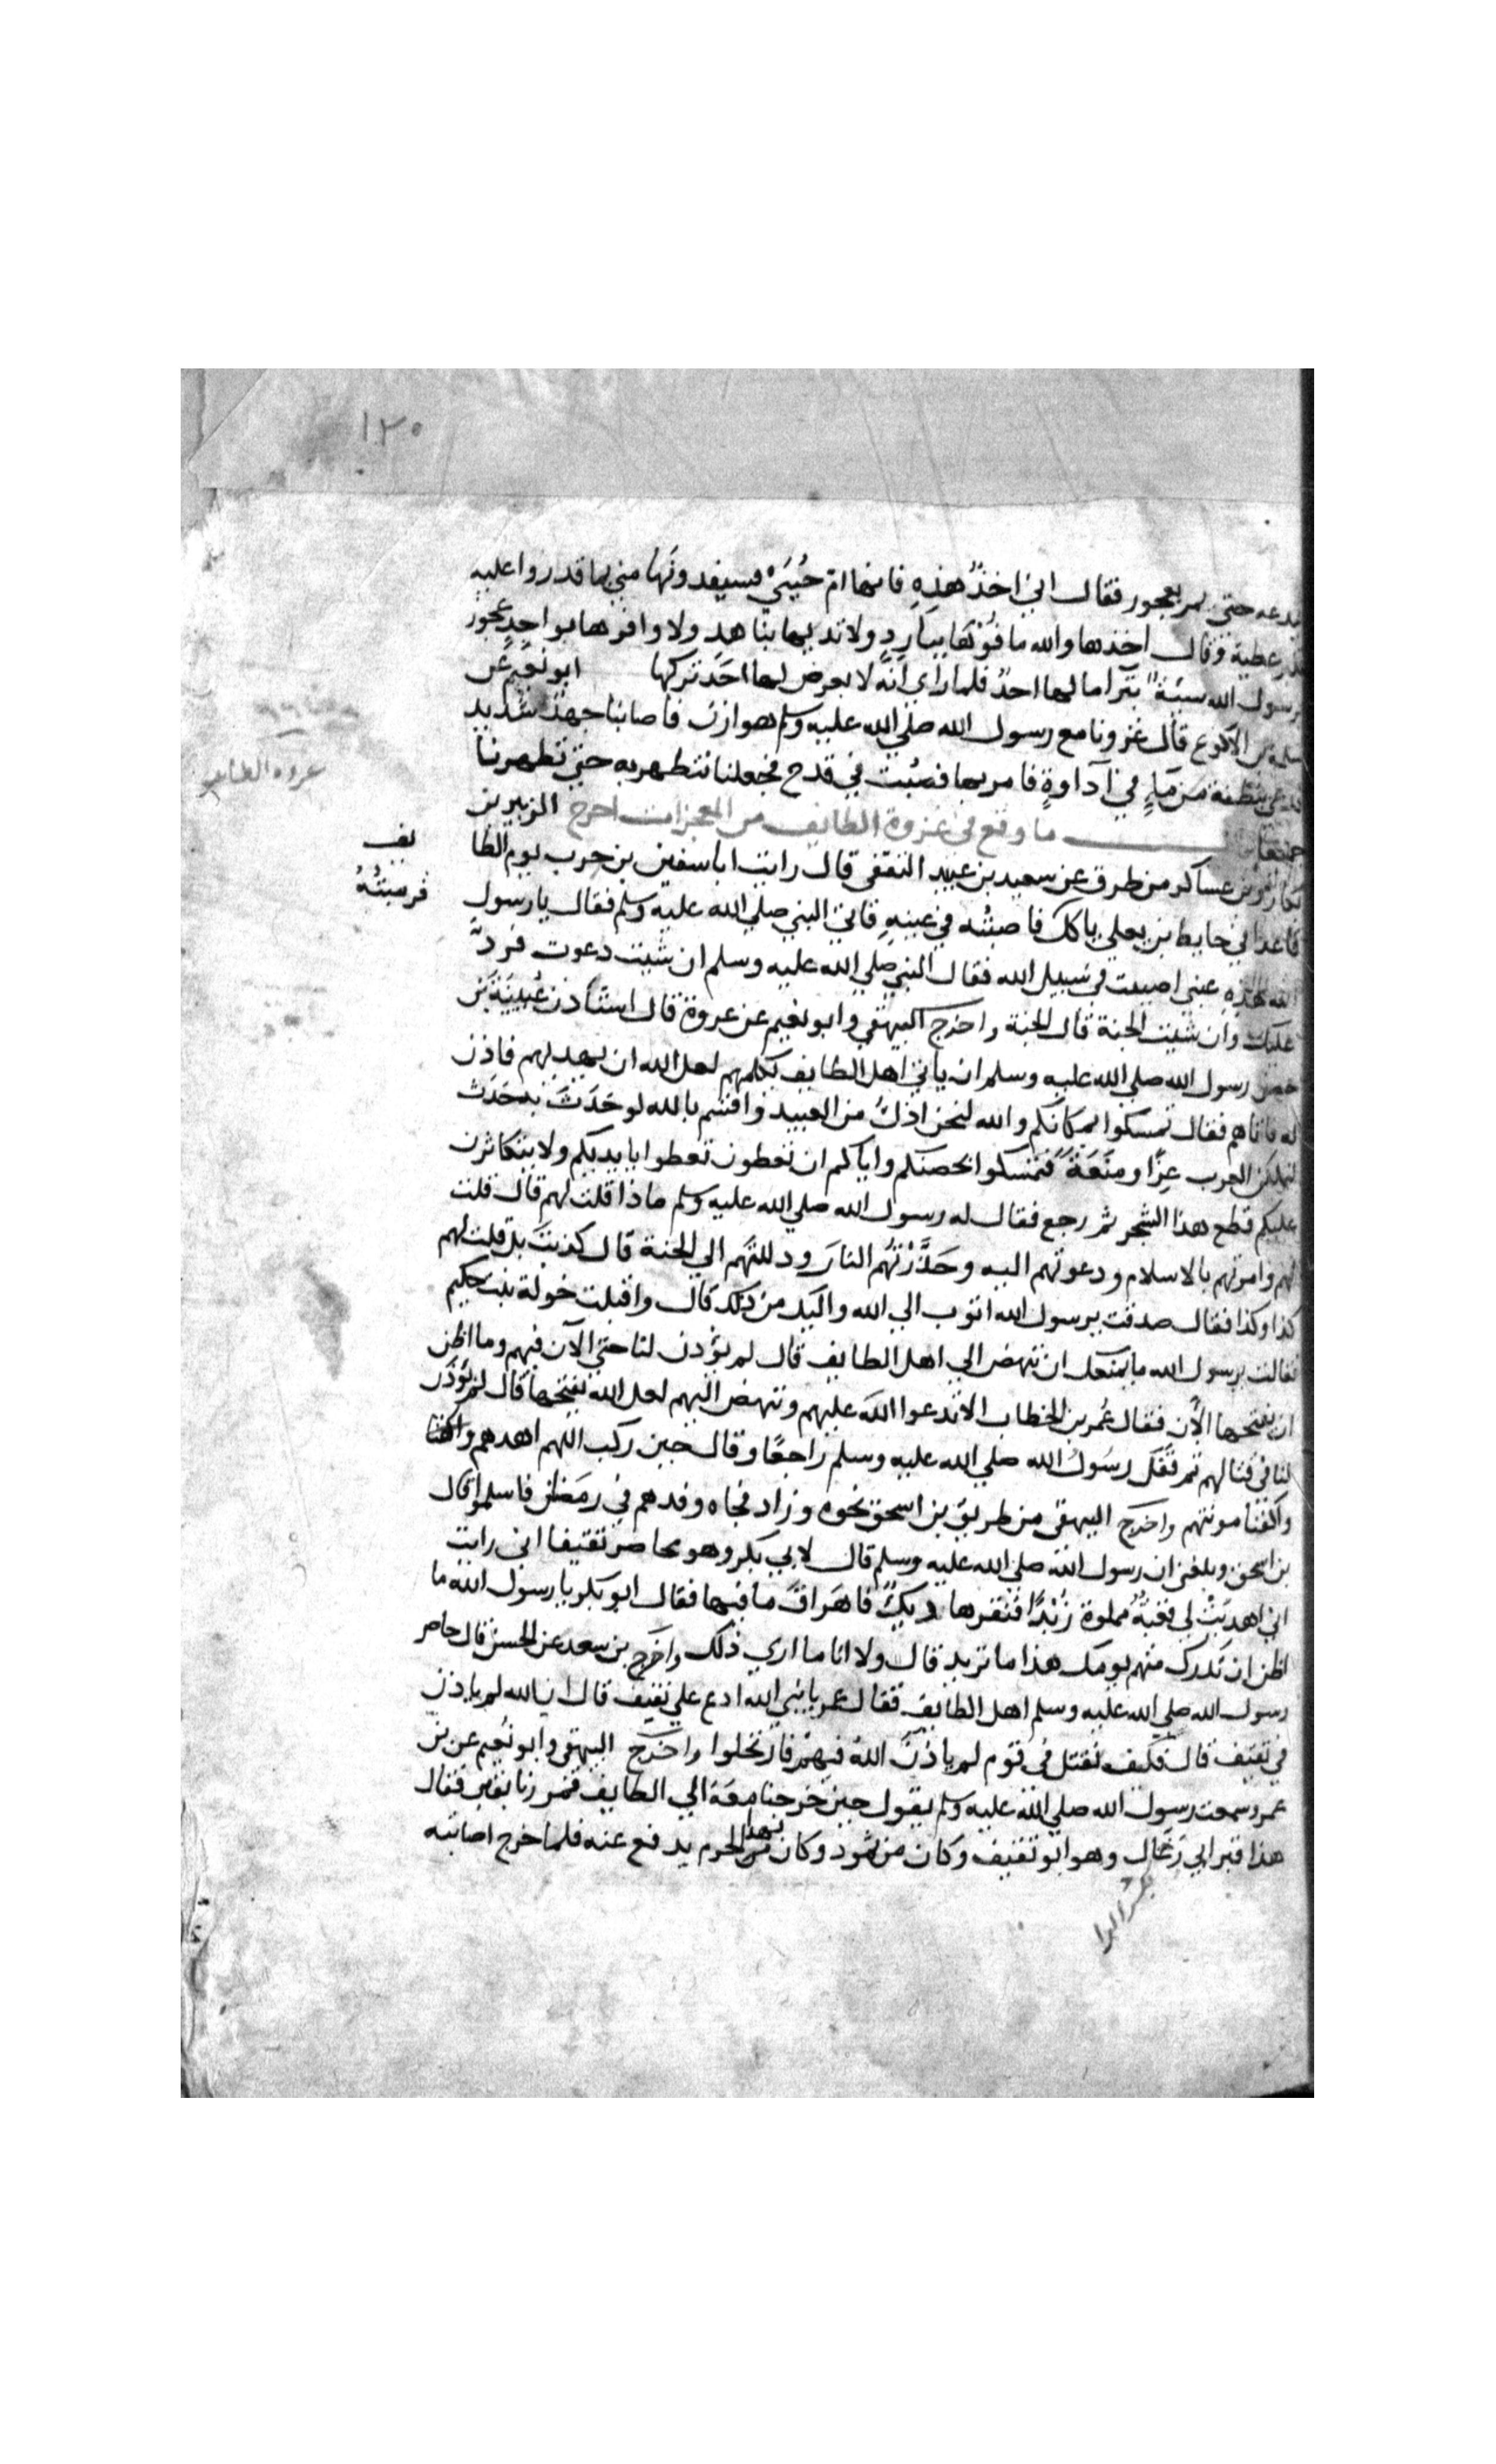 ١٣٥
يدعه حتى يمر بعجوز فقال اني اخذ هذه فانها ام حُيَيّ فسيفدونها مني بما قدروا عليه
عطية وقال اخذها والله ما فوها ببارد ولا ثديها بناهد ولا وافرها بواحد عجوز
يرسول الله سيئة بترا ما لها احد فلما راى انه لا يعرض لها احد تركها ابو نعيم عن
سلمة بن الاكوع قال غزونا مع رسول الله صلي الله عليه وسلم هوازن فاصابنا جهد شديد
بنطفة من ماءٍ في اداوةٍ فامر بها فصبت في قدح فجعلنا نتطهر به حتى تطهرنا
ما وقع في غزوة الطايف من المعجزات اخرج الزبير بن
غزوه الطايف
بكار وبن عساكر من طرق عن سعيد بن عبيد الثقفي قال رايت ابا سفين بن حرب يوم الطا
يف
قاعدا في حايط بن يعلي ياكل فاصبته في عينهِ فاتى النبي صلي الله عليه وسلم فقال يا رسول
فرميتُهُ
الله هذهِ عيني اصيبت في سبيل الله فقال النبي صلي الله عليه وسلم ان شيت دعوت فردّ
عليك وان شيت الجنة قال الجنة واخرج البيهقي وابو نعيم عن عروة قال استأذن عُيينَة بن
حصن رسول الله صلي الله عليه وسلم ان ياتي اهل الطايف يكلمهم لعل الله ان يهديهم فاذن
له فاتاهم فقال تمسكوا بمكانكم والله لنحن اذل من العبيد واقسم بالله لو حَدَثَ به حَدَث
لتملكن العرب عِزًّا ومنَعَةً فتمسكوا بحصنكم واياكم ان تعطوا بايديكم ولا يتكاثرن
عليكم قطع هذا الشجر ثم رجع فقال له رسول الله صلي الله عليه وسلم ماذا قلت لهم قال قلت
لهم وامرتهم بالاسلام ودعوتهم اليه وحَذَّرْتهُم النارَ ودللتهم الي الجنة قال كذبتَ بل قلت لهم
كذا وكذا فقال صدقت يرسول الله اتوب الي الله واليك من ذلك قال واقبلت خولة بنت حكيم
فقالت يرسول الله ما يمنعك ان تنهض الي اهل الطايف قال لم يؤذن لنا حتي الآن فيهم وما اظن
ان نفتحها الآن فقال عُمر بن الخطاب الا تدعوا الله عليهم وتنهض اليهم لعل الله يفتحها قال لم يؤذن
لنا في قتالهم ثم قفل رسُول الله صلي الله عليه وسلم راجعًا وقال حين ركب اللهم اهدهم واكفنا
واكفنا مونتهم واخرج البيهقي من طريق بن اسحق نحوه وزاد فجاه وفدهم في رمضان فاسلموا قال
بن اسحق وبلغني ان رسول الله صلي الله عليه وسلم قال لابي بكر وهو محاصر ثقيفا اني رايت
اني اهديتْ لي قعبة مملوة زُبْدًا فنقرها ديكٌ فاهراقَ ما فيها فقال ابو بكر يا رسول الله ما
اظن ان تدرك منهم يومك هذا ما تريد قال ولا انا ما اري ذلك واخرج بن سعد عن الحسن قال حاصر
رسول الله صلي الله عليه وسلم اهل الطايف فقال عمر يا نبي الله ادع علي ثقيف قال ان الله لم ياذن
في ثقيف قال فكيف نقتل في قوم لم ياذن الله فيهم فارتحلوا واخرج البيهقي وابو نعيم عن بن
عمر وسمعت رسول الله صلي الله عليه وسلم يقول حين خرجنا معَه الي الطايف فمررنا بقبر فقال
هذا قبر ابي رَغال وهو ابو ثقيف وكان من ثمود وكان بهذا الحرم يدفع عنه فلما خرج اصابته